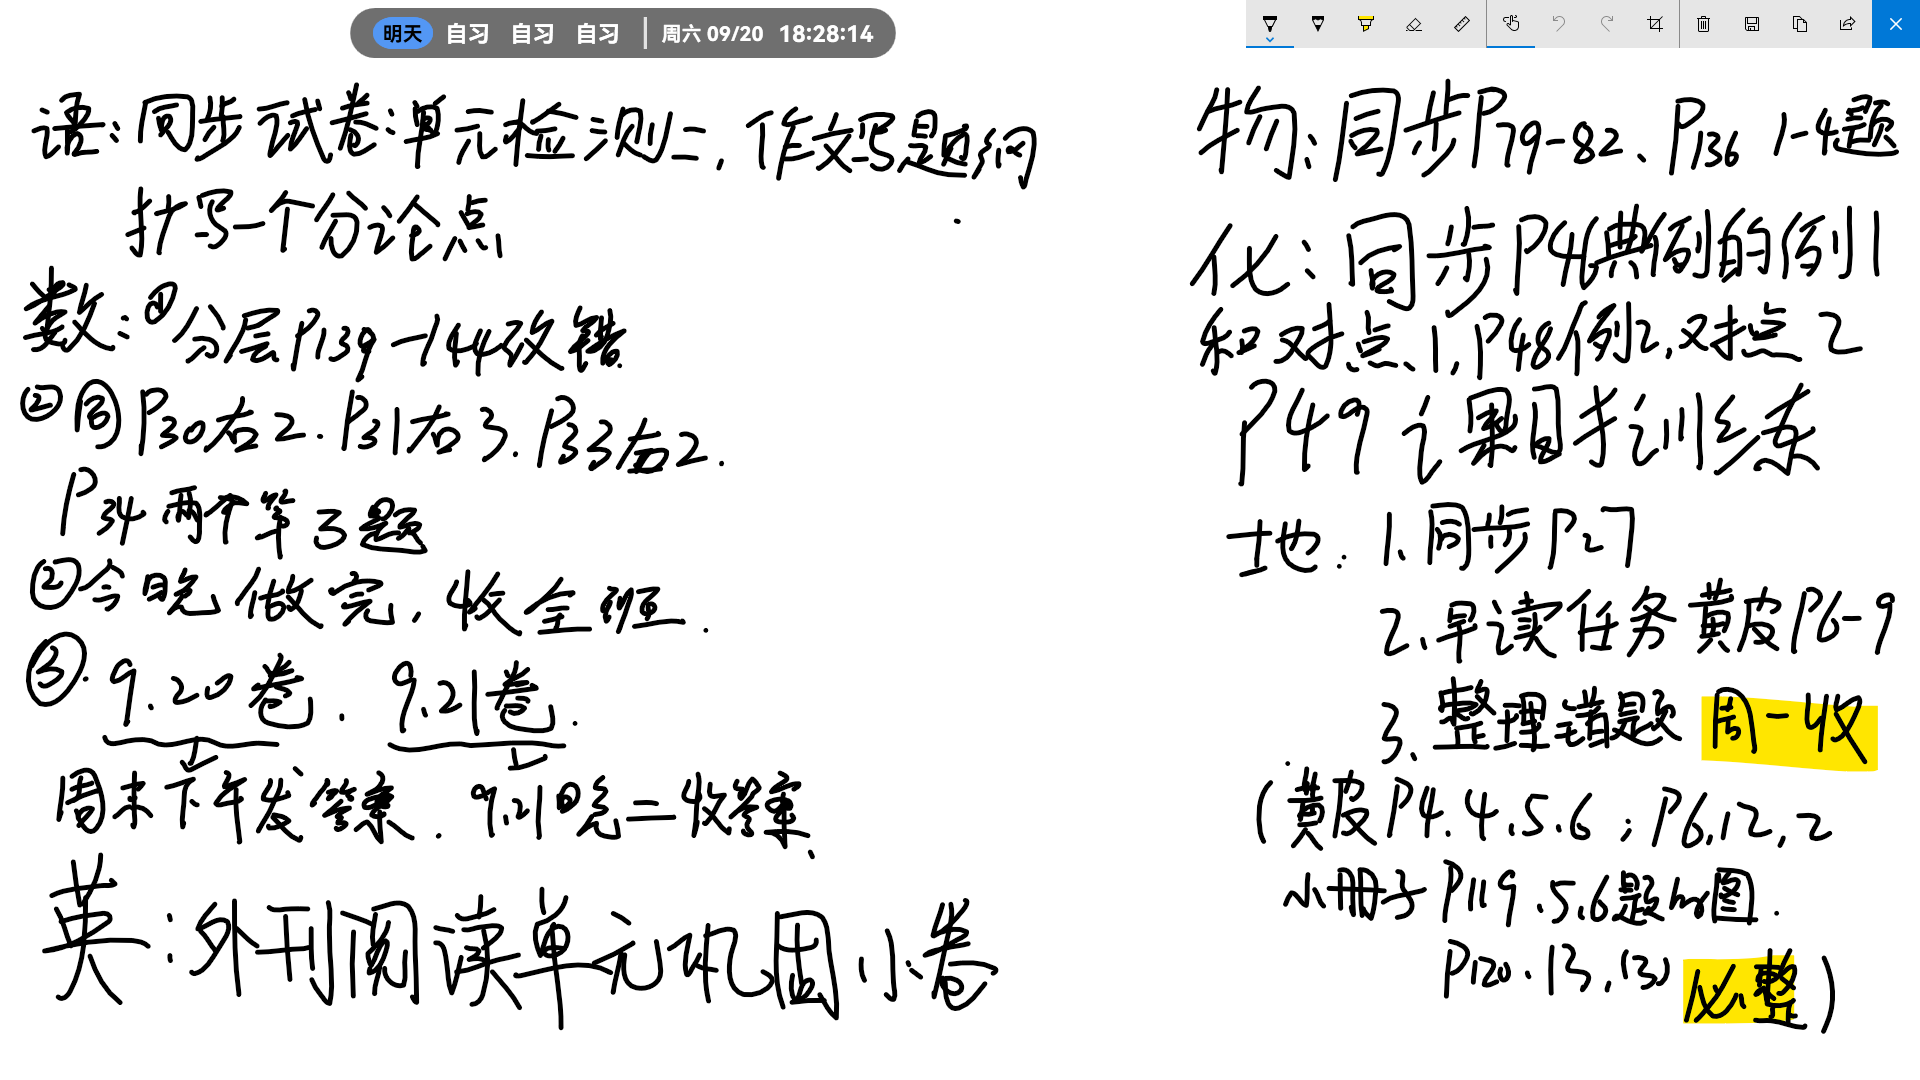 明天 自习 自习 自习 周六 09/20 18:28:14
语：同步试卷：单元检测二，作文写题纲
抄写一个分论点
数：①分层P139-144改错
②同P30右2.P31右3.P33右2.
P34两个第3题
②今晚做完，收全班.
③.9.20卷.9.21卷.
周末下午发答案.9.21日晚二收答案.
英：外刊阅读单元巩固小卷
物：同步P79-82、P136 1-4题
化：同步P46典例的例1
和对点、1，P48例2，对点2
P49 课目标训练
地：1、同步P27
2、早读任务黄皮P6-9
3、整理错题 周一收
（黄皮P4.4.5.6；P6.12，2
小册子P119.5.6题的图.
P120.13，(3) 必整）